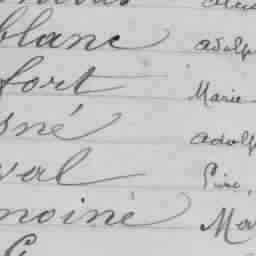 blanc adolp
fort Marie
sné adolp
val
moine Ma